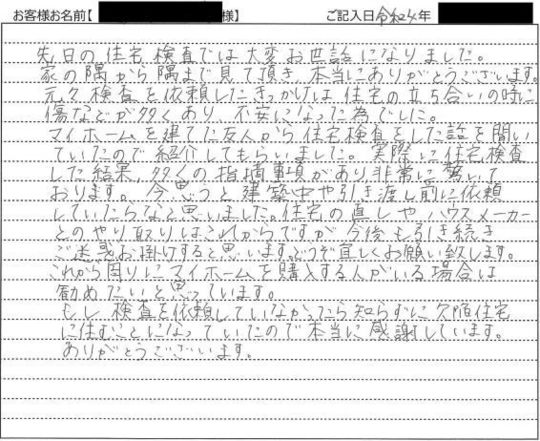 お客様お名前【 様】 ご記入日 令和4年
先日の住宅検査では大変お世話になりました。
家の隅から隅まで見て頂き、本当にありがとうございます。
元々検査を依頼したきっかけは住宅の立ち合いの時に
傷などが多くあり、不安になった為でした。
マイホームを建てた友人から住宅検査をした話を聞い
ていたので紹介してもらいました。実際に住宅検査
した結果、多くの指摘事項があり非常に驚いて
おります。今思うと建築中や引き渡し前に依頼
していたらなと思いました。住宅の直しや、ハウスメーカー
とのやり取りはこれからですが今後も引き続き
ご迷惑お掛けすると思いますどうぞ宜しくお願い致します。
これから周りにマイホームを購入する人がいる場合は
勧めたいと思っています。
もし検査を依頼していなかったら知らずに欠陥住宅
に住むことになっていたので本当に感謝しています。
ありがとうございます。